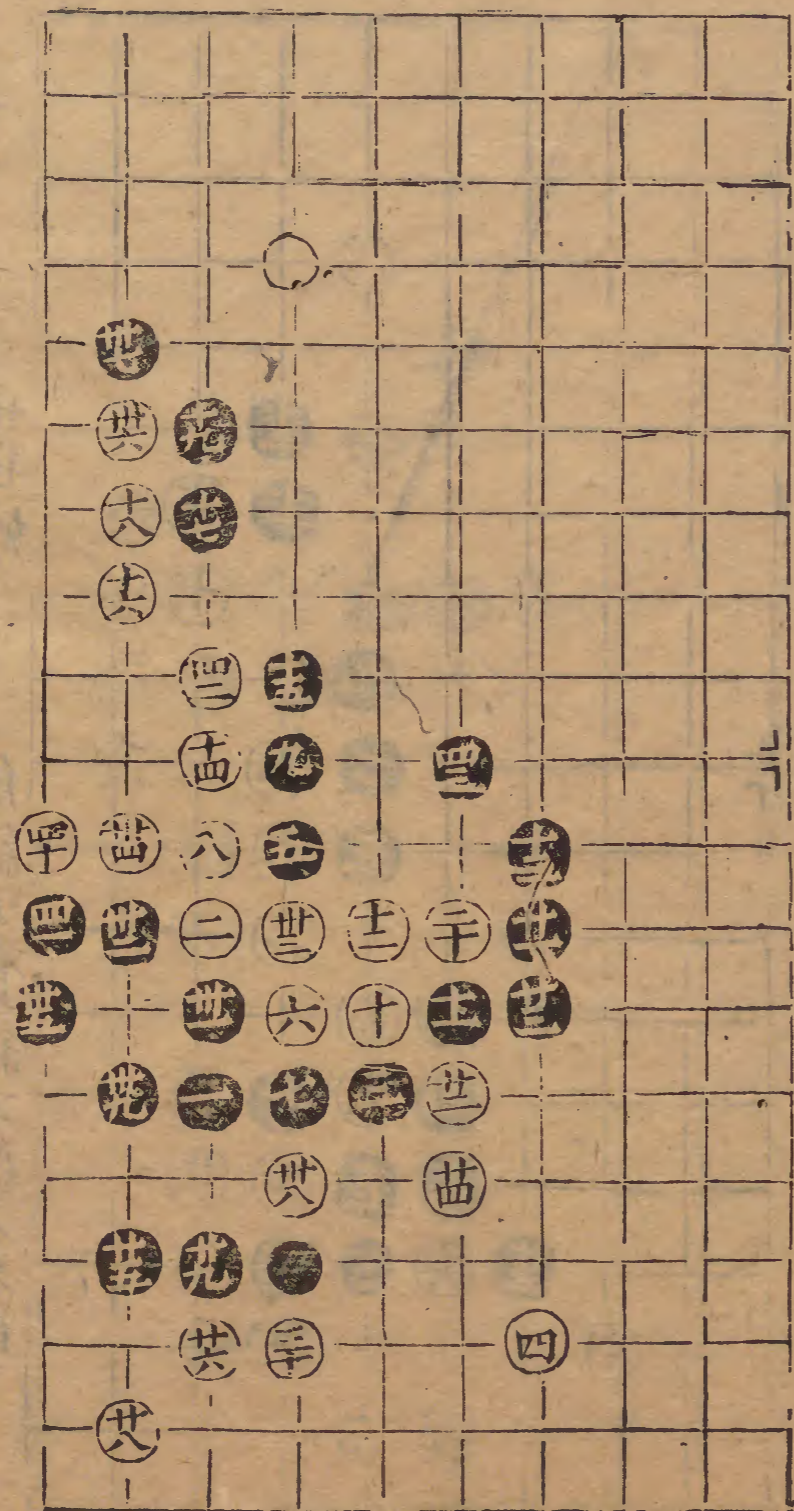 卅七
卅六 十九
十八 十七
十六
四二 十五
十四 九 四三
四十 卅四 八 五 十三
四一 卅三 二 卅二 十二 二十 廿三
卅五 卅一 六 十 十一 廿一
卅九 一 七 三 廿二
卅八 廿四
廿五 廿九
廿六 三十 四
廿八